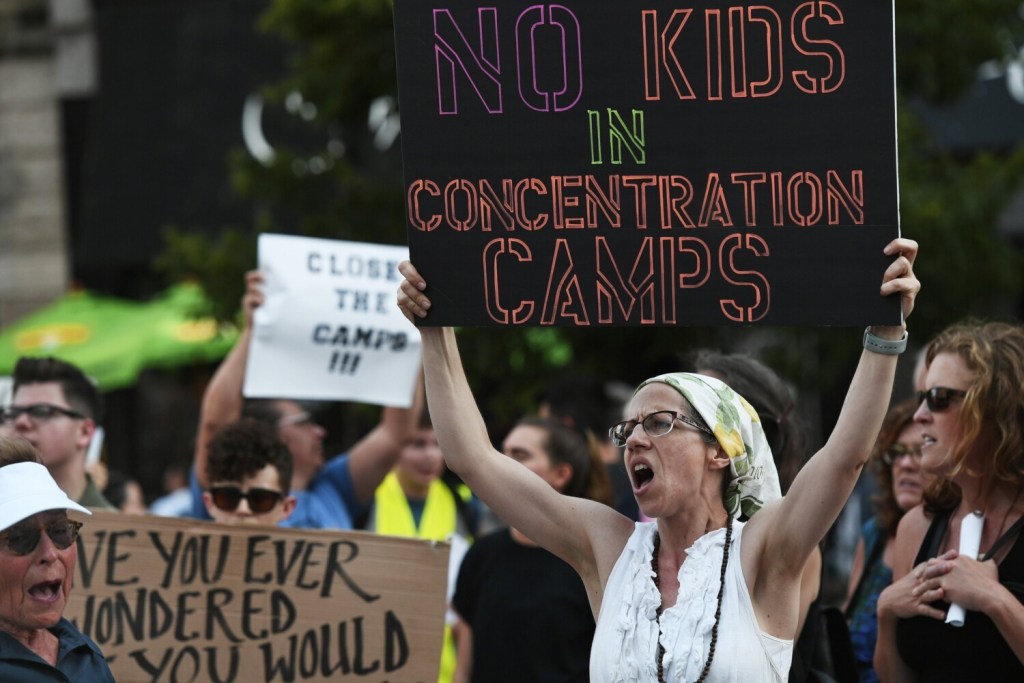 NO KIDS
IN
CONCENTRATION
CAMPS
CLOSE
THE
CAMPS
!!!
VE YOU EVER
WONDERED
YOU WOULD